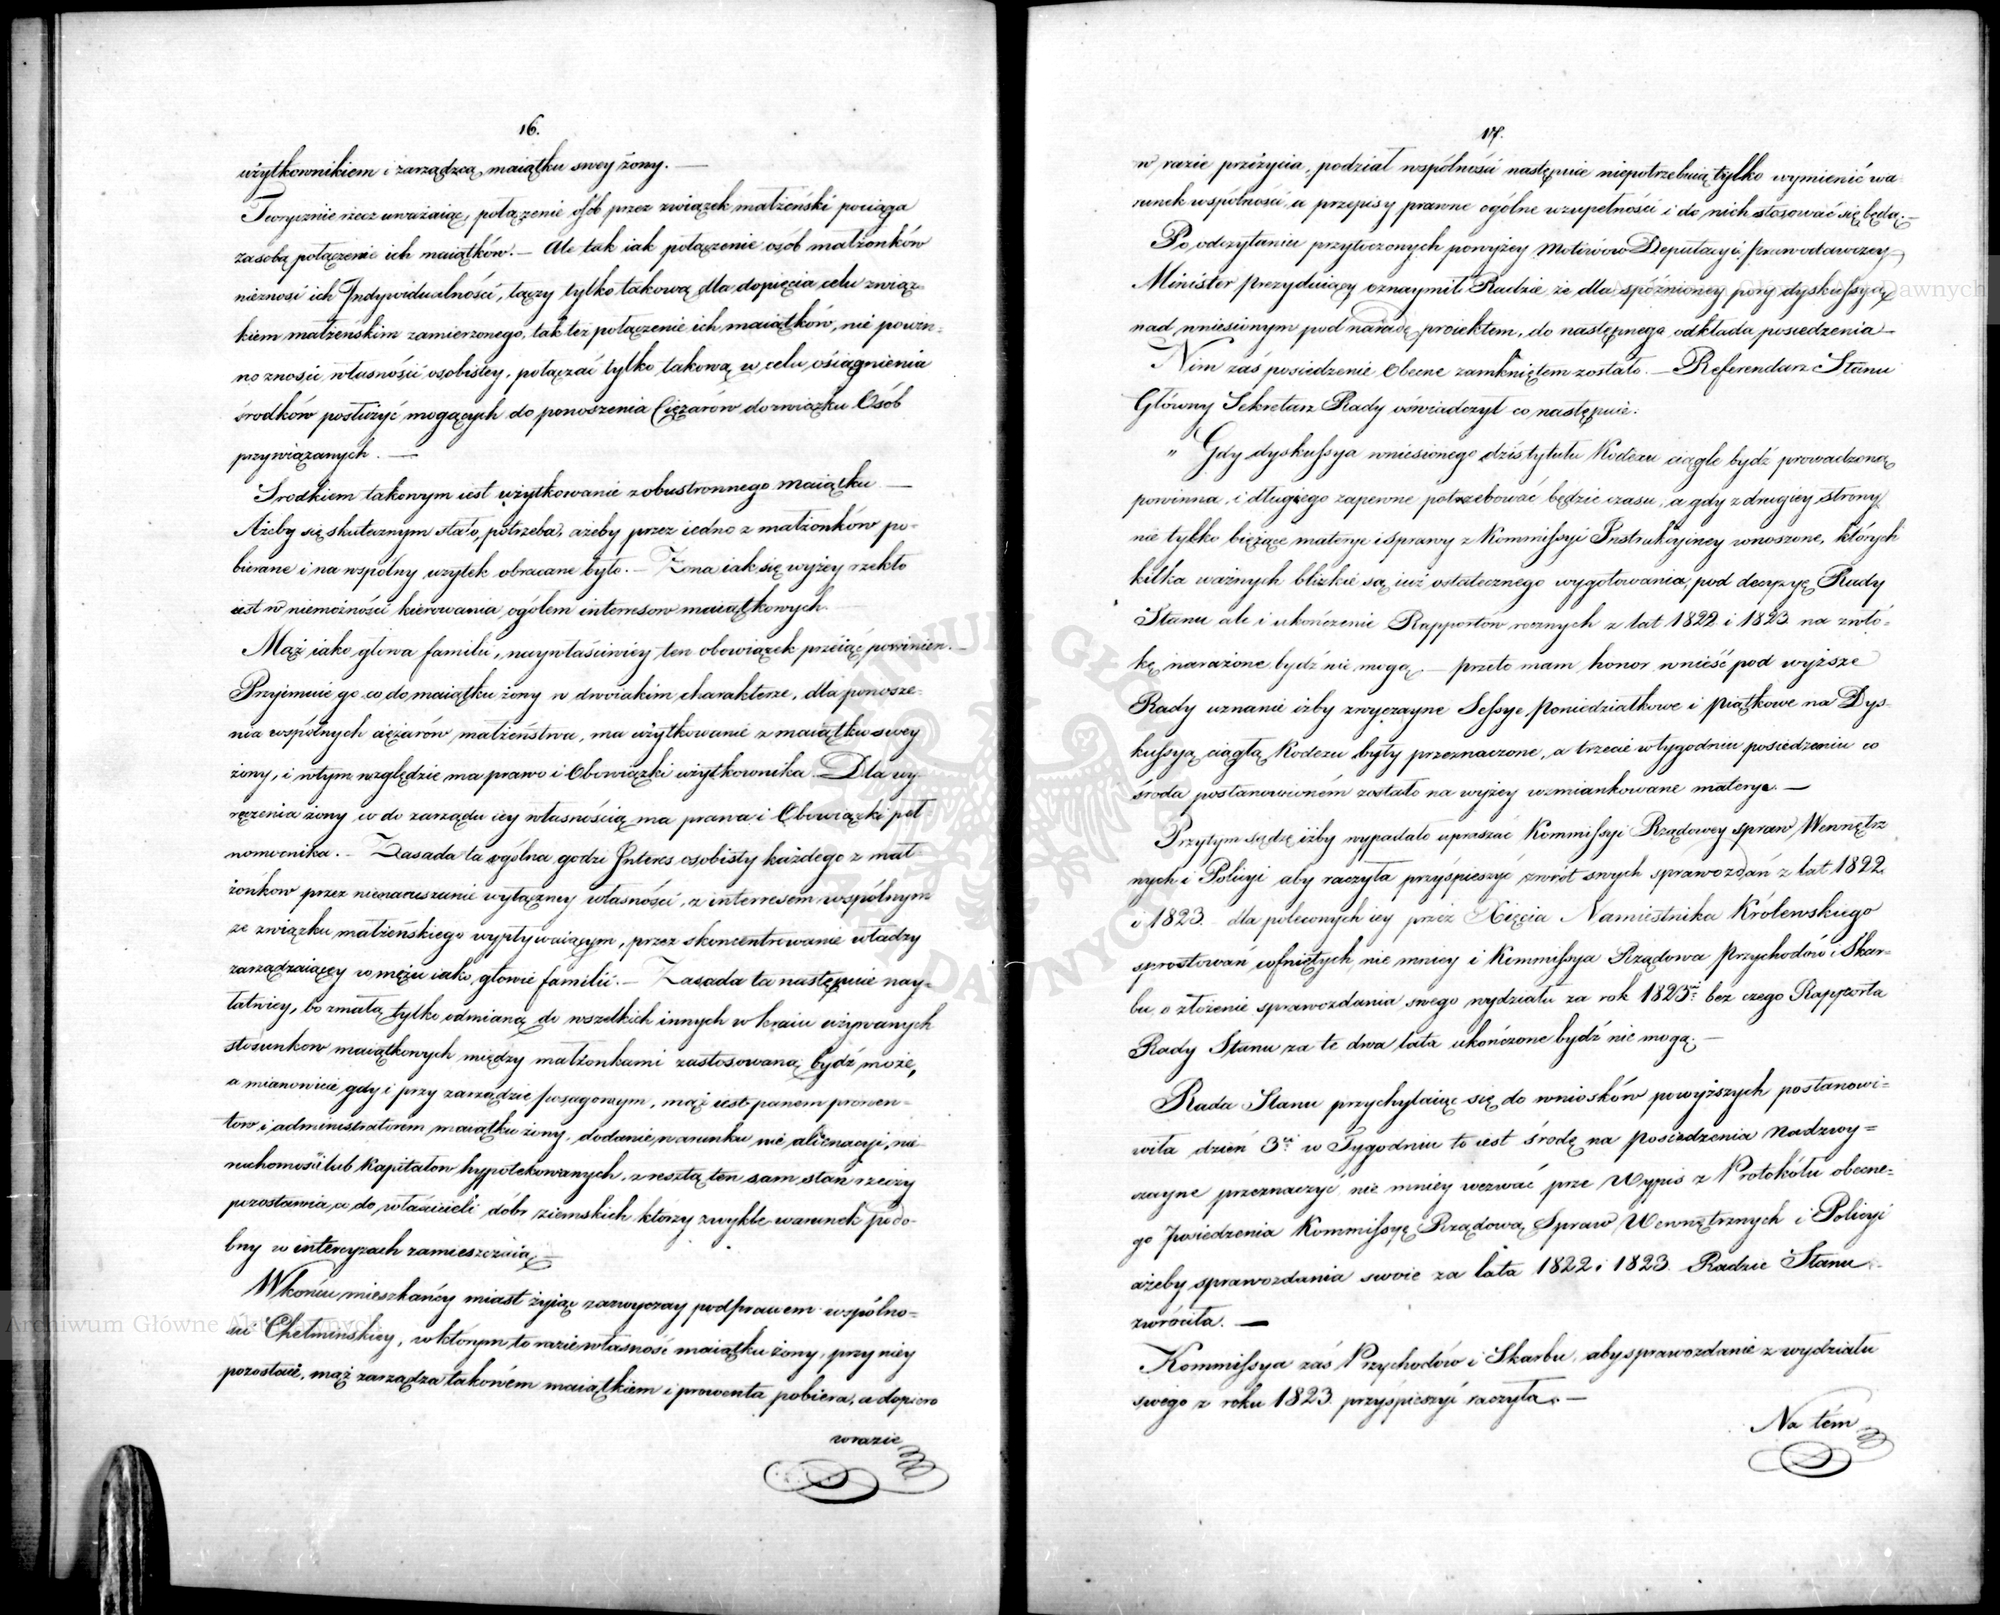 16.
użytkownikiem i zarządzcą maiątku swey żony. —
Teorycznie rzecz uważaiąc, połączenie osób przez związek małżeński pociąga
za sobą połączenie ich maiątków. — Ale tak iak połączenie osób małżonków
nieznosi ich Indywidualności, łączy tylko takową dla dopięcia celu związ-
kiem małżeńskim zamierzonego, tak też połączenie ich maiątków, nie powin-
no znosić własności osobistey, połączać tylko takową w celu osiągnienia
środków posłużyć mogących do ponoszenia Ciężarów do związku Osób
przywiązanych. —
Srodkiem takowym iest użytkowanie z obustronnego maiątku —
Ażeby się skutecznym stało, potrzeba, ażeby przez iedno z małżonków po-
bierane i na wspólny użytek obracane było. — Żona iak się wyżey rzekło
iest w niemożności kierowania ogółem interresow maiątkowych. —
Mąż iako głowa familii, naywłaściwiey ten obowiązek przeiąć powinien. —
Przyimuie go co do maiątku żony w dwoiakim charakterze, dla ponosze-
nia wspólnych ciężarów małżeństwa, ma użytkowanie z maiątku swey
żony, i w tym względzie ma prawo i Obowiązki użytkownika. Dla wy-
ręczenia żony w do zarządu iey własnością ma prawa i Obowiązki peł-
nomocnika. — Zasada ta ogólna godzi Interes osobisty każdego z mał-
żonkow przez nienaruszanie wyłączney własności, z interresem wspólnym
ze związku małżeńskiego wypływaiącym, przez skoncentrowanie władzy
zarządzaiącey w mężu iako głowie familii. — Zasada ta następuie nay-
łatwiey, bo z małą tylko odmianą do wszelkich innych w kraiu używanych
stosunkow maiątkowych między małżonkami zastosowaną bydź może,
a mianowicie gdy i przy zarządzie posagowym, mąż iest panem prowen-
tow i administratorem maiątku żony, dodanie warunku nie alienacyi nie-
ruchomości lub Kapitałow hypotekowanych, z resztą ten sam stan rzeczy
pozostawia, a do właścicieli dóbr ziemskich którzy zwykle warunek podo-
bny w intercyzach zamieszczaią —
W końcu mieszkańcy miast żyiąc zazwyczay pod prawem wspólno-
ści Chełmińskiey, w którym to razie własność maiątku żony, przy niey
pozostaie, mąż zarządza takowém maiątkiem i prowenta pobiera, a dopiero
w razie
17.
w razie przeżycia, podział wspólności następuie niepotrzebuią tylko wymienić wa-
runek wspólności, a przepisy prawne ogólne uzupełności i do nich stosować się będą. —
Po odczytaniu przytoczonych powyżey Motiwów Deputacyi prawodawczey
Minister prezyduiący oznaymił Radzie że dla spóźnioney pory dyskussyą
nad wniesionym pod naradę proiektem, do następnego odkłada posiedzenia —
Nim zaś posiedzenie Obecne zamkniętem zostało. — Referendarz Stanu
Główny Sekretarz Rady oświadczył co następuie:
„ Gdy dyskussya wniesionego dziś tytułu Kodexu ciągle bydź prowadzoną
powinna, i długiego zapewne potrzebować będzie czasu, a gdy z drugiey strony
nie tylko bieżące materye i sprawy z Kommissyi Instrukcyiney wnoszone, których
kilka ważnych blizkie są iuż ostatecznego wygotowania pod decyzyę Rady
Stanu ale i ukończenie Rapportów rocznych z lat 1822 i 1823 na zwło-
kę narażone bydź nie mogą. — przeto mam honor wnieść pod wyższe
Rady uznanie iżby zwyczayne Sessye Poniedziałkowe i piątkowe na Dys-
kussyą ciągłą Kodexu były przeznaczone, a trzecie w tygodniu posiedzenie co
środa postanowioném zostało na wyżey wzmiankowane materye. —
Przytym sądzę iżby wypadało upraszać Kommissyi Rządowey spraw Wewnętrz
nych i Policyi aby raczyła przyśpieszyć zwrót swych sprawozdań z lat 1822
i 1823 dla poleconych iey przez Xięcia Namiestnika Królewskiego
sprostowań cofniętych nie mniey i Kommissya Rządowa Przychodów i Skar-
bu, o złożenie sprawozdania swego wydziału za rok 1823. bez czego Rapporta
Rady Stanu za te dwa lata ukończone bydź nie mogą. —
Rada Stanu przychylaiąc się do wniosków powyższych postanowi-
wiła dzień 3ci w Tygodniu to iest środę na posiedzenia Nadzwy-
czayne przeznaczyć, nie mniey wezwać prze Wypis z Protokółu obecne-
go posiedzenia Kommissyę Rządową Spraw Wewnętrznych i Policyi
ażeby sprawozdania swoie za lata 1822 i 1823 Radzie Stanu
zwróciła. —
Kommissya zaś Przychodów i Skarbu, aby sprawozdanie z wydziału
swego z roku 1823 przyśpieszyć raczyła. —
Na tém